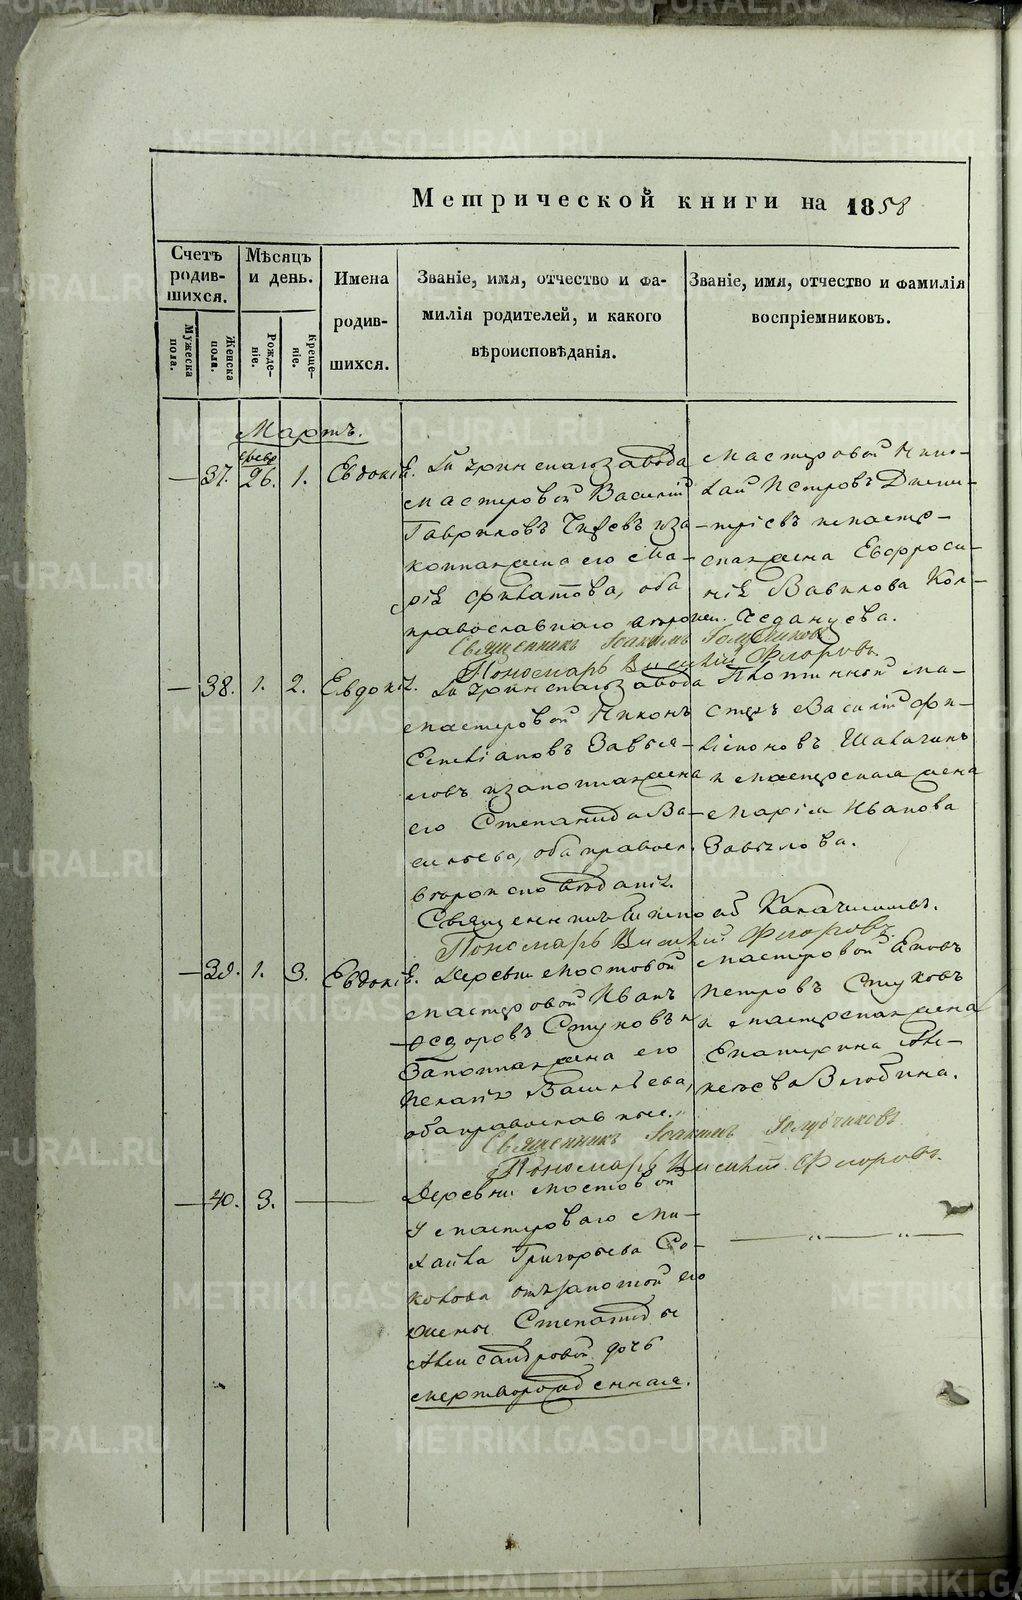 Метрической книги на 1858
Счетъ родив-шихся.
Мужеска пола.
Женска пола.
Мѣсяцъ и день.
Рожде-ніе.
Креще-ніе.
Имена родив-шихся.
Званіе, имя, отчество и фа-
милія родителей, и какого
вѣроисповѣданія.
Званіе, имя, отчество и фамилія
воспріемниковъ.
Мартъ.
февр.
37. 26. 1. Евдокія.
завода
мастеровой Василій
Гавриловъ иза
коннаяжена его Ма-
рія Филатова, оба
православнаго
Мастеровой Нико-
лай Петровъ Дмит-
ріевъ имастер-
скаяжена Евфроси-
нія Вавилова
Священникъ Іоакимъ Голубчиковъ
Пономарь Флоровъ.
38. 1. 2. Евдокія.
завода
мастеровой Никонъ
Емельяновъ Завья-
ловъ изаконнаяжена
его Степанида Ва-
сильева, оба правосл.
вѣроисповѣданія.
Плотинной ма-
стеръ Василій Фи-
лимоновъ
и мастерская жена
Марія Иванова
Завьялова.
Священникъ
Пономарь Флоровъ.
39. 1. 3. Евдокія.
Деревни Мостовой
мастеровой Иванъ
Ѳедоровъ Стуковъ и
Законнаяжена его
Пелагія Васильева,
оба православные.
Мастеровой Яковъ
Петровъ Стуковъ
и мастерскаяжена
Екатерина Але-
ксѣева
Священникъ Іоакимъ Голубчиковъ
Пономарь Флоровъ.
40. 3.
Деревни Мостовой
У мастероваго Ми-
хаила Григорьева Со-
колова отъзаконной его
жены Степаниды
Александровой дочь
мертворожденная.
METRIKI.GASO-URAL.RU